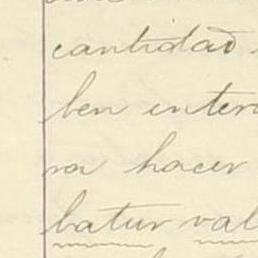 cantidad
ben inter
ra hacer
batur val